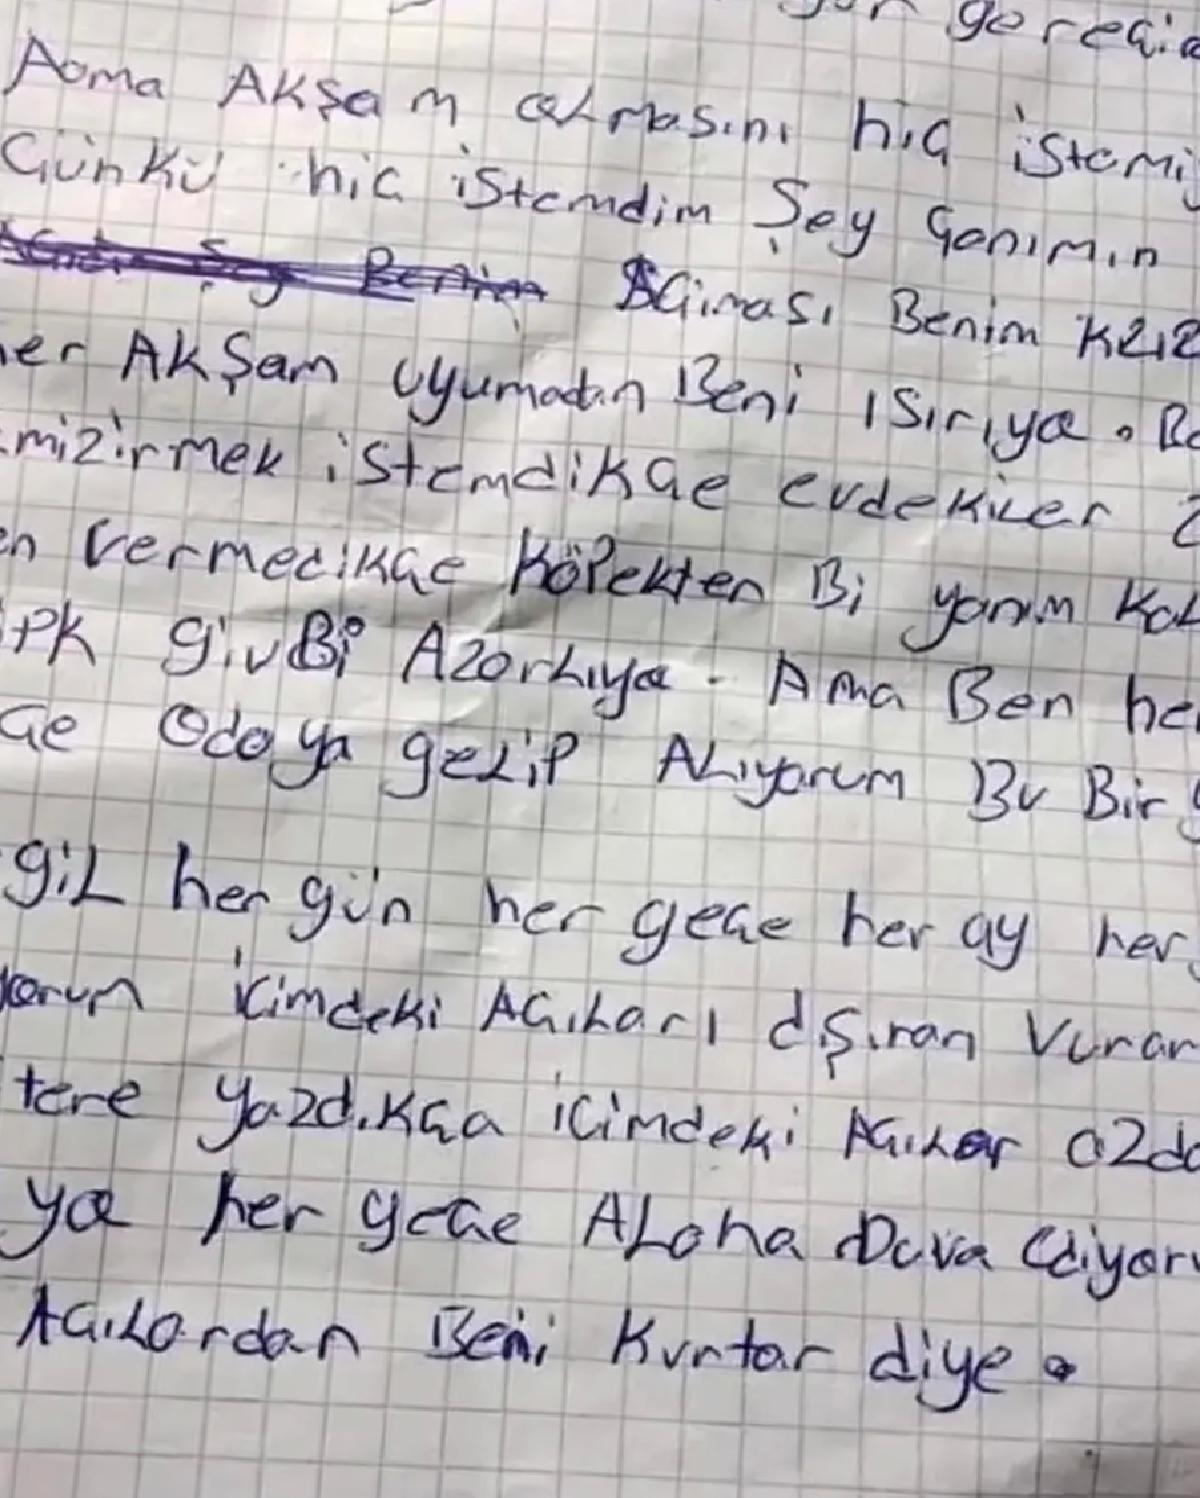 gereci
Aoma AKşam oLmasını hiç istemi
Günkü hiç istemdim Şey Ganımın
Benim AGıması Benim
her AKŞam uyumadan Beni ısırıya. Be
mizirmek istemdikçe evdekiler
en vermedikçe Köpekten Bi yanım KaL
givBi AzarLıya. Ama Ben he
çe Odaya geLip ALıyorum Bu Bir
giL her gün her gece her ay her
orum içimdeki AçıLarı dışıran Vuram
tere yazdıkça içimdeki AcıLar azda
ya her gece ALaha Duva Ediyoru
AcıLardan Beni Kurtar diye.